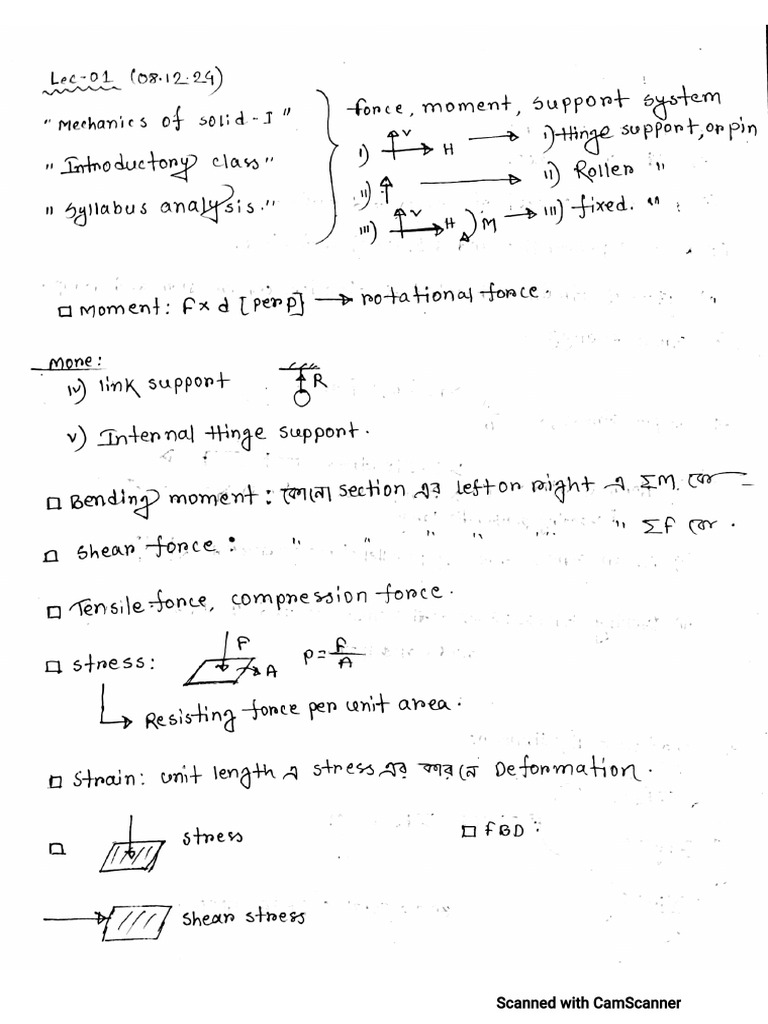 Lec-01 (08.12.24)
"Mechanics of solid-I"
"Introductory class"
"Syllabus analysis."
force, moment, support system
i) V H → i) Hinge support, or pin
ii) → ii) Roller "
iii) V H M → iii) fixed. "
□ Moment: F x d [perp] → rotational force.
More:
iv) link support R
v) Internal Hinge support.
□ Bending moment: কোনো section এর left or right এ ΣM কে
□ Shear force: " " " " " " ΣF কে.
□ Tensile force, compression force.
□ Stress: F A P = F/A
↳ Resisting force per unit area.
□ Strain: unit length এ stress এর কারনে Deformation.
□ stress
□ FBD:
shear stress
Scanned with CamScanner